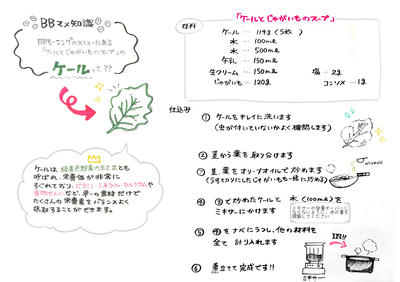 BBマメ知識
BBモーニングのメニューにある
「ケールとじゃがいものスープ」や
ケールって??
ケールは緑黄色野菜の王さまとも
呼ばれ、栄養価が非常に
すぐれており、ビタミン・ミネラル・カルシウムや
食物せんいなど、単一の食材だけで
たくさんの栄養素をバランスよく
摂取することができます。
「ケールとじゃがいものスープ」
材料
ケール … 114g (5枚)
水 … 100ml
水 … 500ml
牛乳 … 150ml
生クリーム … 150ml 塩 … 2g
じゃがいも … 120g コンソメ … 1g
仕込み
① ケールをキレイに洗います
(虫が付いていないかよく確認します)
② 茎から葉を取り分けます
③ 茎、葉をオリーブオイルで炒めます
(うすくスライスしたじゃがいもも一緒に炒める)
④ ③で炒めたケールと 水(100ml)を
ミキサーにかけます
⑤ ④をナベにうつし、他の材料を
全て 計り入れます
ミキサー
⑥ 煮立てて完成です!!